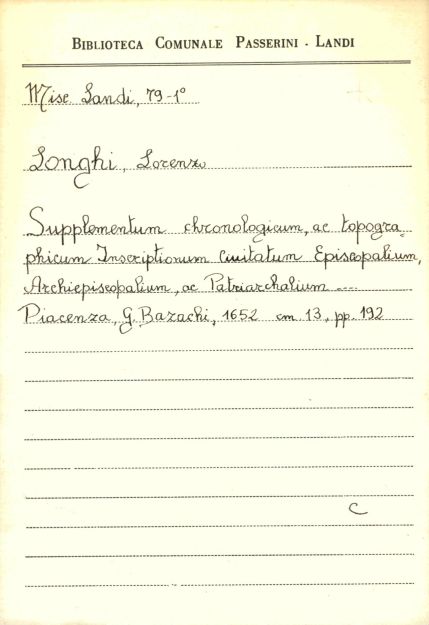 BIBLIOTECA COMUNALE PASSERINI - LANDI
Misc. Landi, 79-1°
Longhi, Lorenzo
Supplementum chronologicum, ac topogra=
phicum Inscriptionum Civitatum Episcopalium,
Archiepiscopalium, ac Patriarchalium ....
Piacenza, G. Bazachi, 1652 cm 13, pp. 192
C